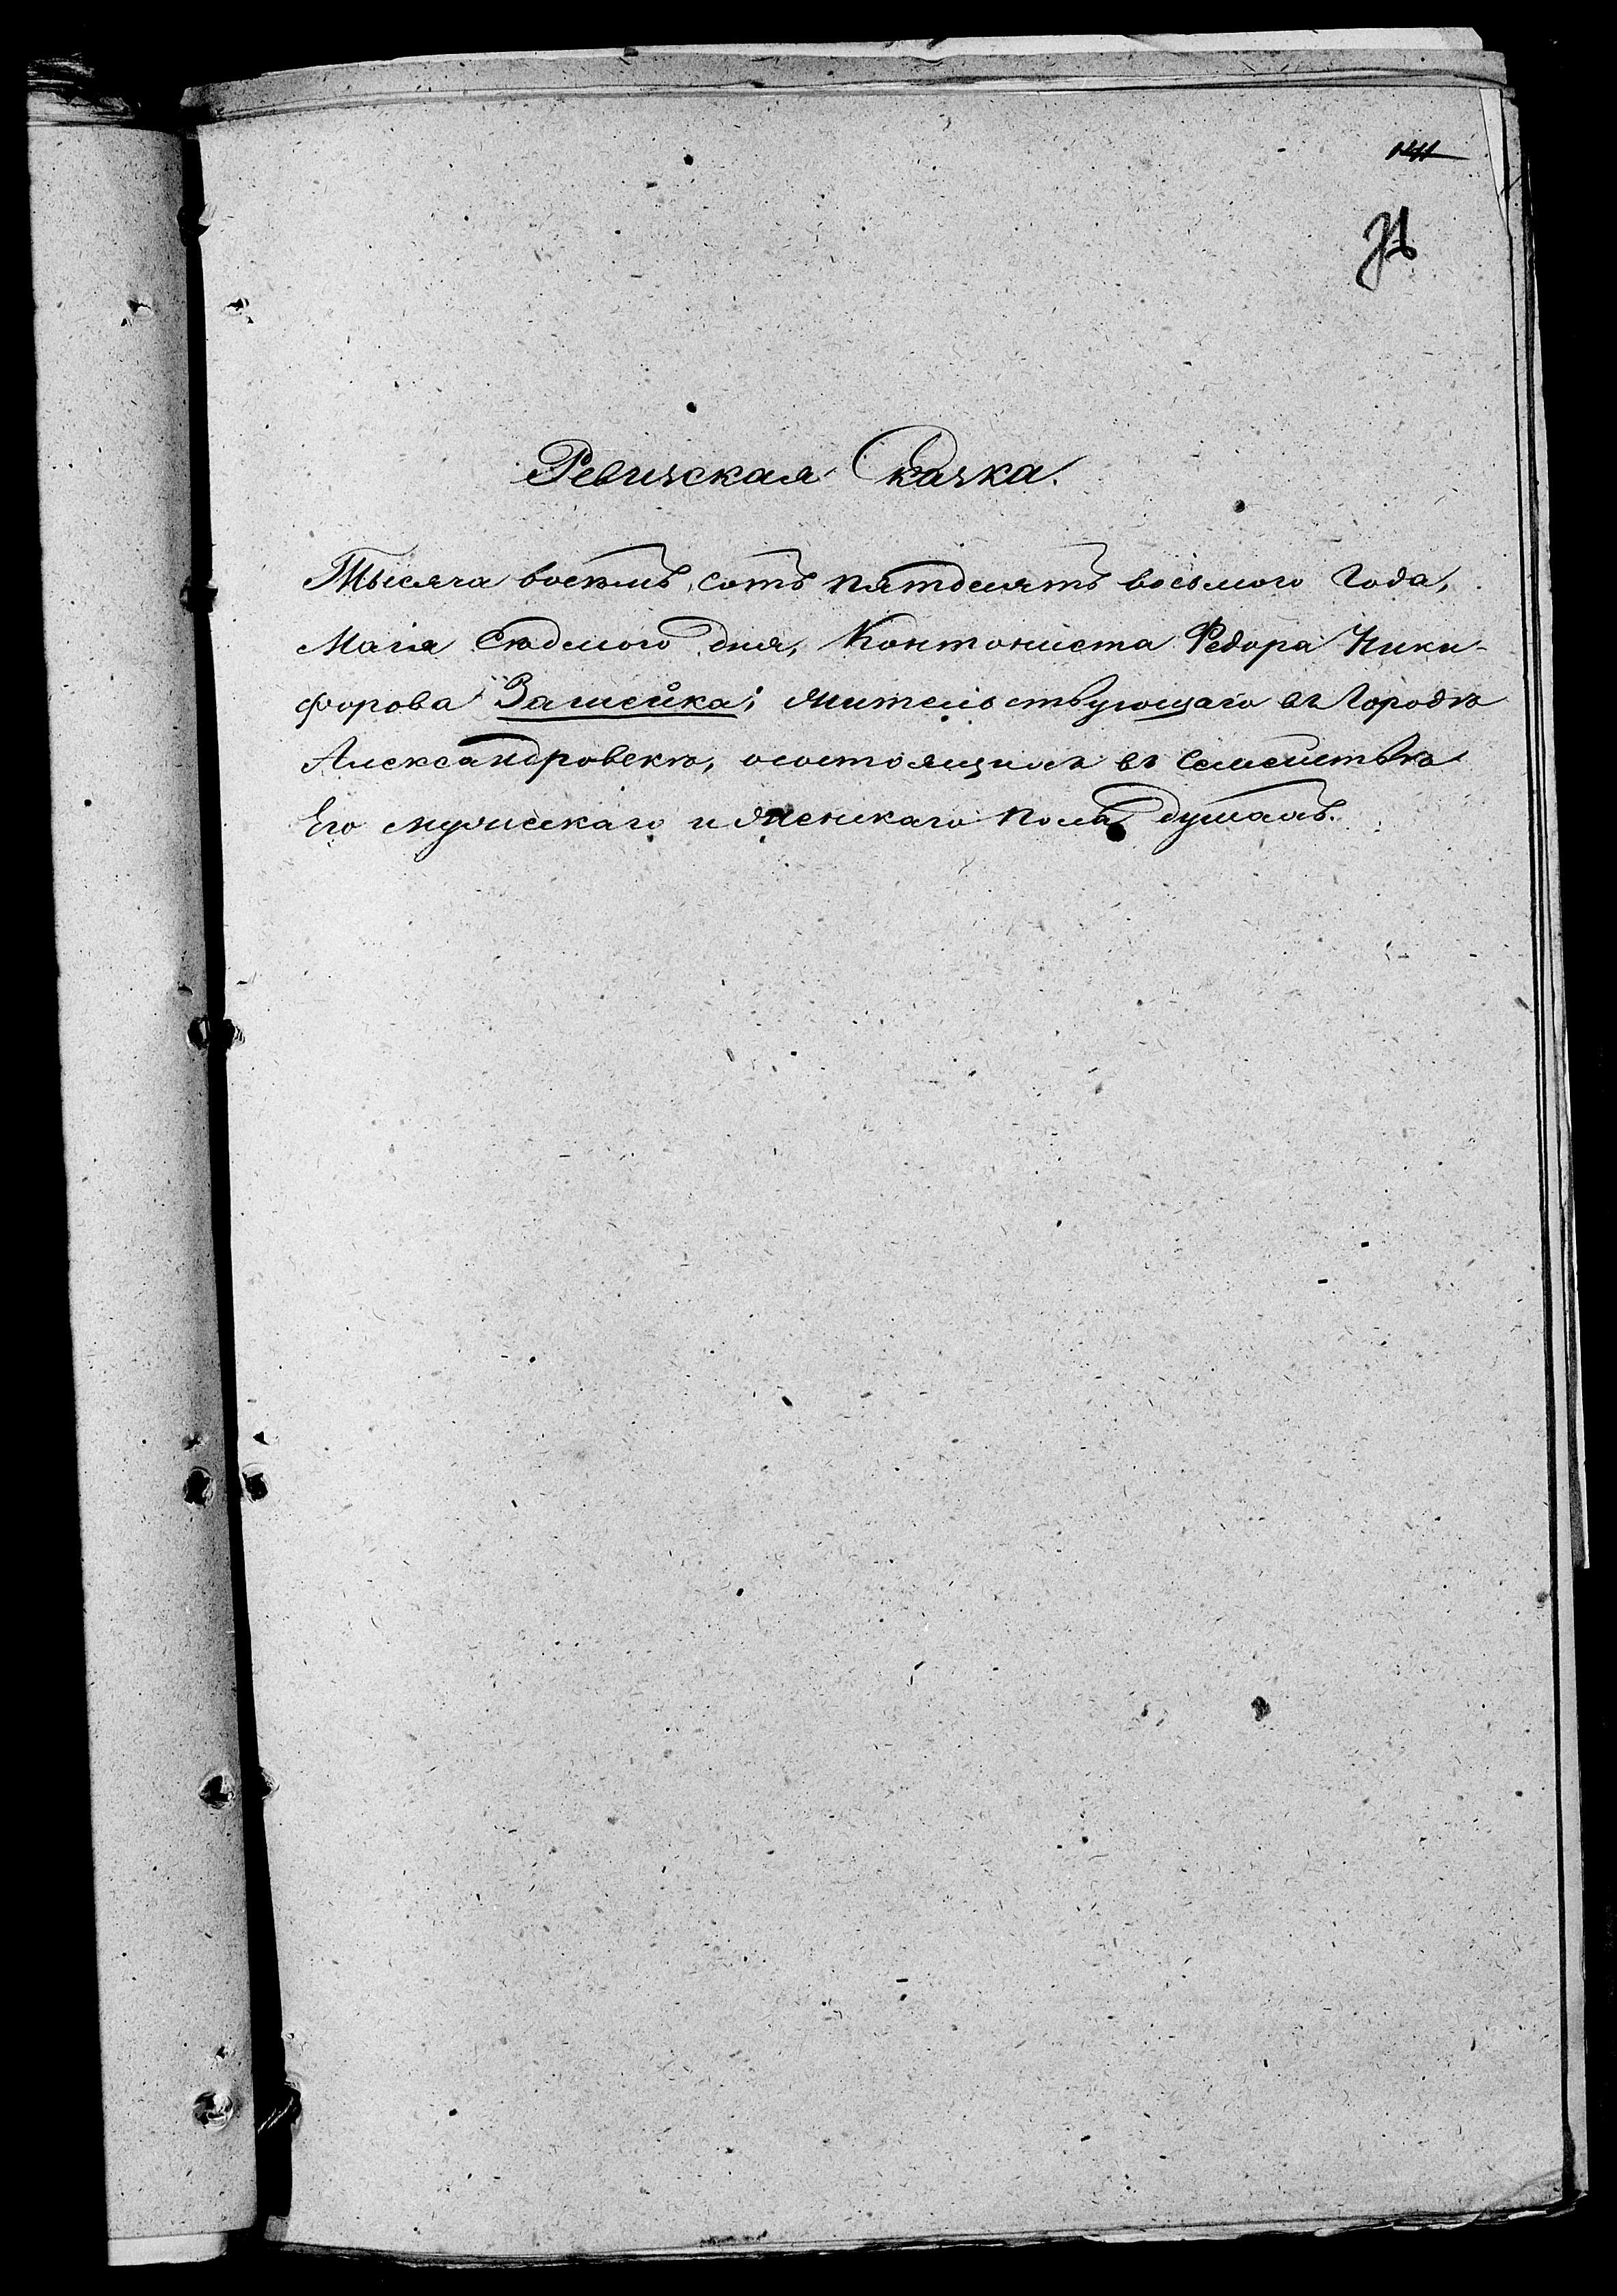 Ревизская Сказка.
Тысяча восемь сотъ пятдесятъ восьмого Года,
Маія Седмого дня, Контониста Федора Ники-
форова Зашейка; жительствующаго въ Городѣ
Александровскѣ, о состоящихъ въ семействѣ
Его мужескаго и женскаго пола душахъ.